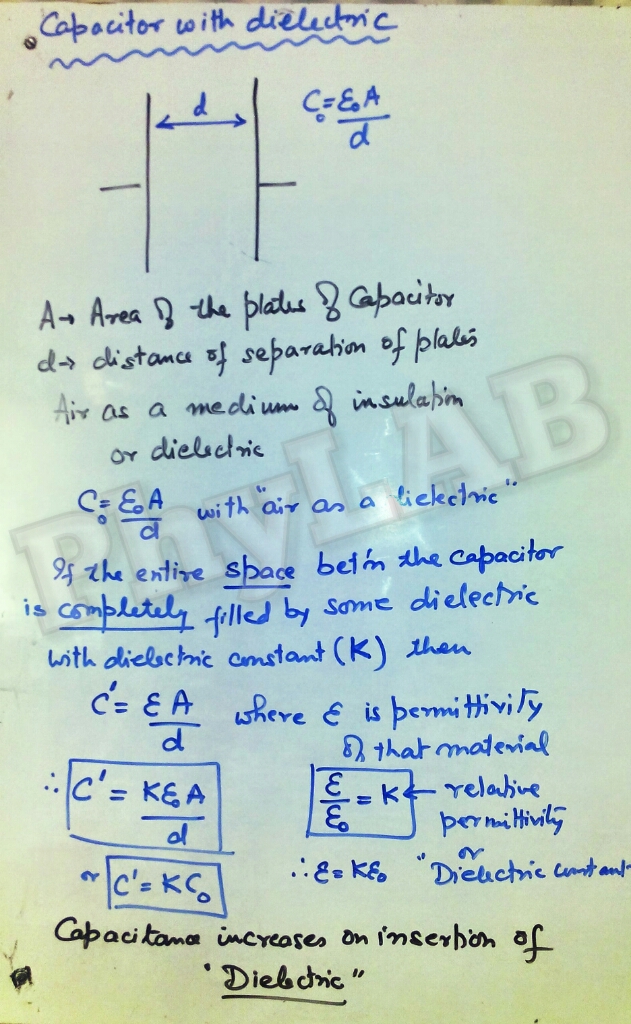 Capacitor with dielectric
d
C₀ = ε₀A
d
A → Area of the plates of Capacitor
d → distance of separation of plates
Air as a medium of insulation
or dielectric
C₀ = ε₀A with "air as a dielectric"
d
If the entire space betn the capacitor
is completely filled by some dielectric
with dielectric constant (K) then
C' = εA where ε is permittivity
d of that material
∴ C' = Kε₀A ε = K ← relative
d ε₀ permittivity
or
or C' = KC₀ ∴ ε = Kε₀ "Dielectric constant
Capacitance increases on insertion of
"Dielectric"
PhyLAB